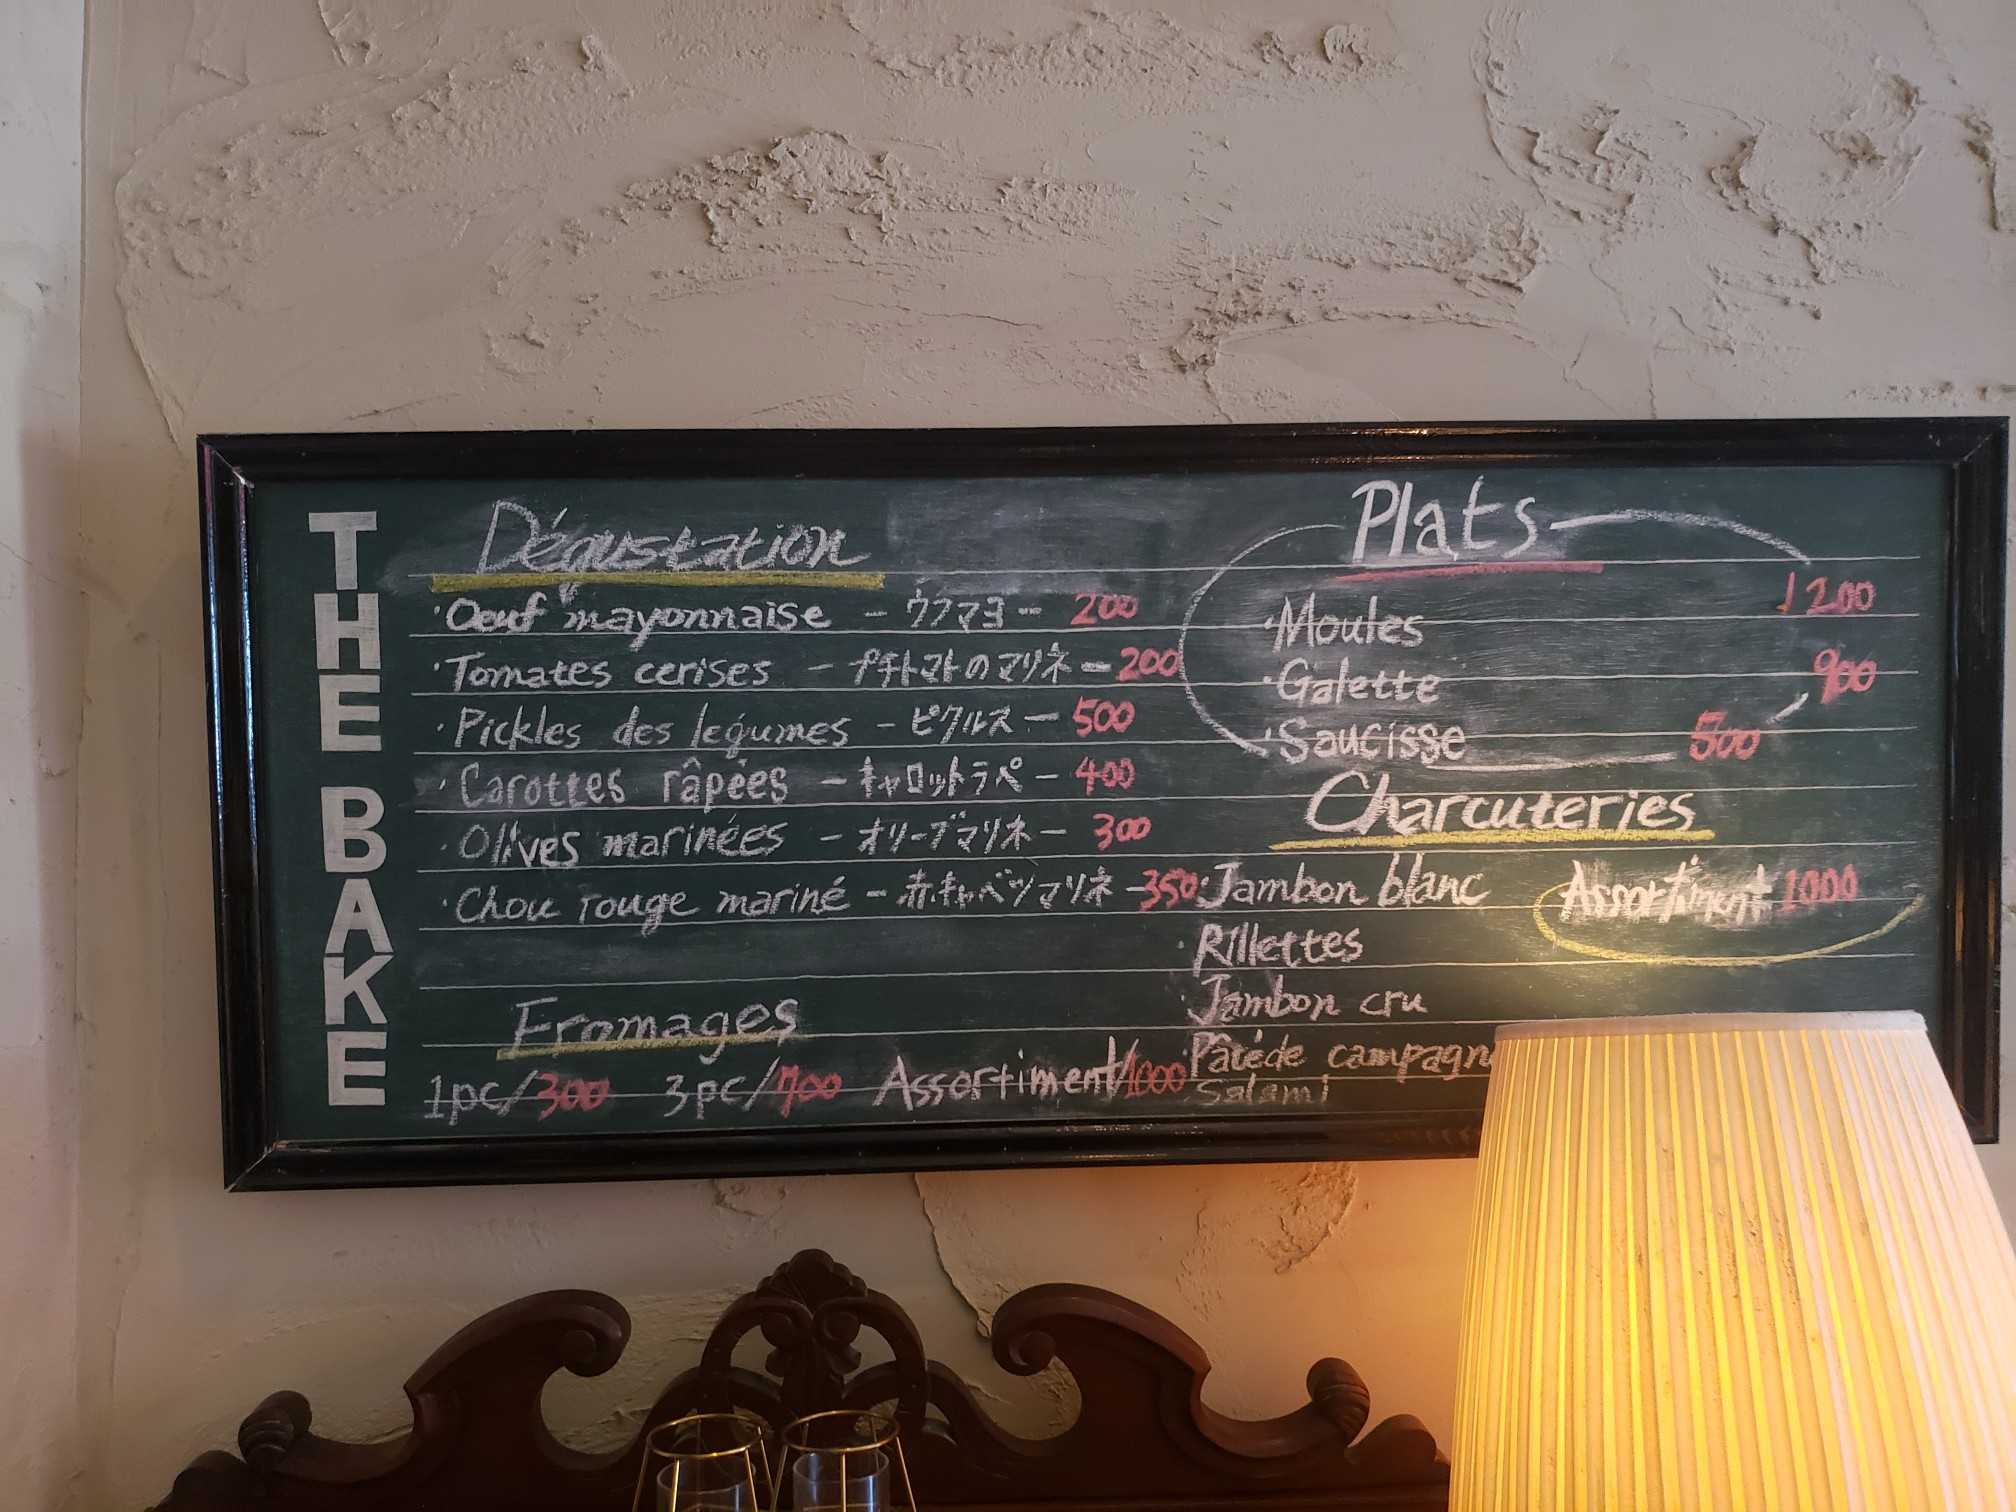 THE BAKE
Dégustation
・Oeuf mayonnaise - ウフマヨ - 200
・Tomates cerises - プチトマトのマリネ - 200
・Pickles des légumes - ピクルス - 500
・Carottes râpées - キャロットラペ - 400
・Olives marinées - オリーブマリネ - 300
・Chou rouge mariné - 赤キャベツマリネ - 350
Fromages
1pc/300 3pc/700 Assortiment/1000
Plats
・Moules 1200
・Galette 900
・Saucisse 500
Charcuteries
・Jambon blanc Assortiment 1000
・Rillettes
・Jambon cru
・Pâté de campagn
・Salami